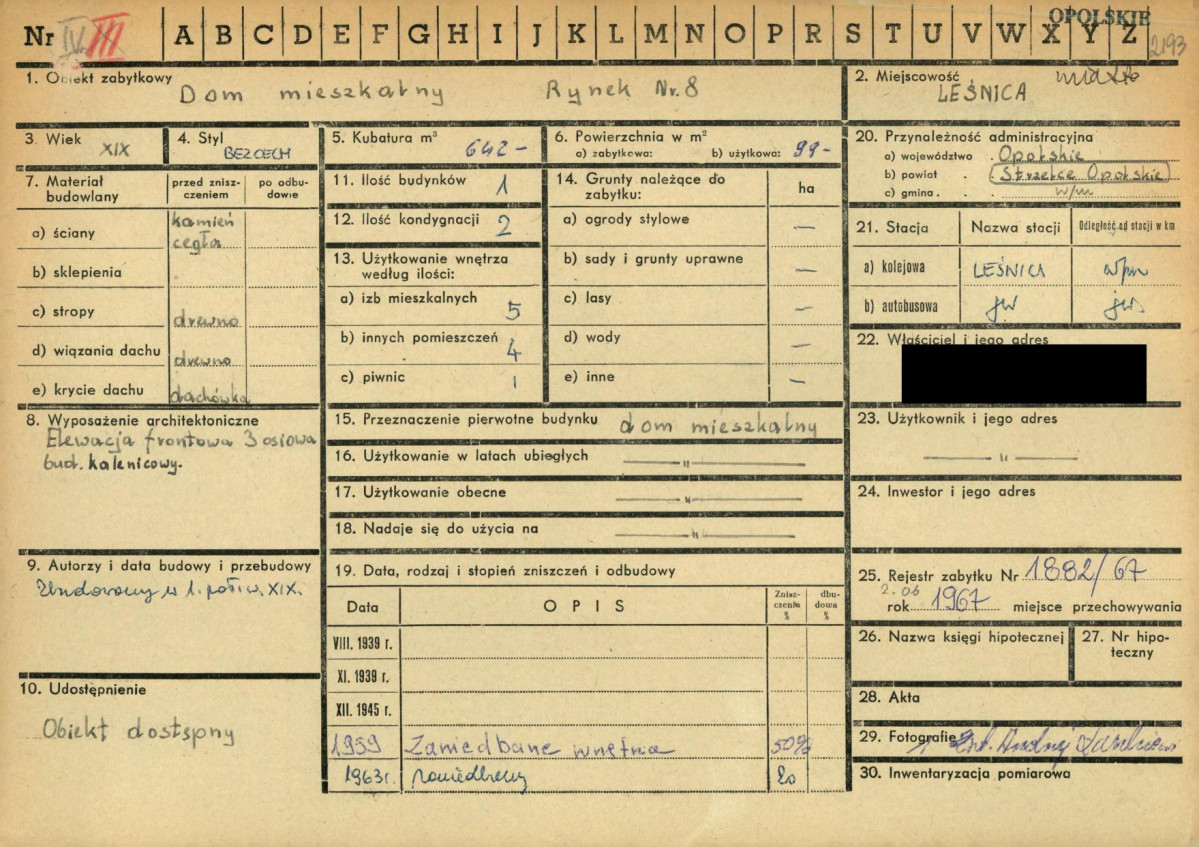 OPOLSKIE
Nr IV. III A B C D E F G H I J K L M N O P R S T U V W X Y Z 2193
1. Obiekt zabytkowy
Dom mieszkalny Rynek Nr. 8
2. Miejscowość miasto
LEŚNICA
3. Wiek XIX
4. Styl BEZCECH
5. Kubatura m³ 642-
6. Powierzchnia w m²
a) zabytkowa: b) użytkowa: 99-
20. Przynależność administracyjna
a) województwo Opolskie
b) powiat Strzelce Opolskie
c) gmina w/m
7. Materiał budowlany
przed zniszczeniem
po odbudowie
a) ściany kamień cegła
b) sklepienia
c) stropy drewno
d) wiązania dachu drewno
e) krycie dachu dachówka
11. Ilość budynków 1
12. Ilość kondygnacji 2
13. Użytkowanie wnętrza według ilości:
a) izb mieszkalnych 5
b) innych pomieszczeń 4
c) piwnic 1
14. Grunty należące do zabytku: ha
a) ogrody stylowe —
b) sady i grunty uprawne —
c) lasy —
d) wody —
e) inne —
21. Stacja Nazwa stacji Odległość od stacji w km
a) kolejowa LEŚNICA w/m
b) autobusowa jw jw.
22. Właściciel i jego adres
8. Wyposażenie architektoniczne
Elewacja frontowa 3 osiowa
bud. kalenicowy.
15. Przeznaczenie pierwotne budynku dom mieszkalny
16. Użytkowanie w latach ubiegłych — " —
17. Użytkowanie obecne — " —
18. Nadaje się do użycia na — " —
23. Użytkownik i jego adres
— " —
24. Inwestor i jego adres
9. Autorzy i data budowy i przebudowy
Zbudowany w 1. poł. w. XIX.
19. Data, rodzaj i stopień zniszczeń i odbudowy
Data OPIS Zniszczenia % dbudowa %
VIII. 1939 r.
XI. 1939 r.
XII. 1945 r.
1959 Zaniedbane wnętrza 50%
1963 r. zaniedbany 20
25. Rejestr zabytku Nr 1882/67
2.06
rok 1967 miejsce przechowywania
26. Nazwa księgi hipotecznej
27. Nr hipoteczny
10. Udostępnienie
Obiekt dostępny
28. Akta
29. Fotografie
30. Inwentaryzacja pomiarowa